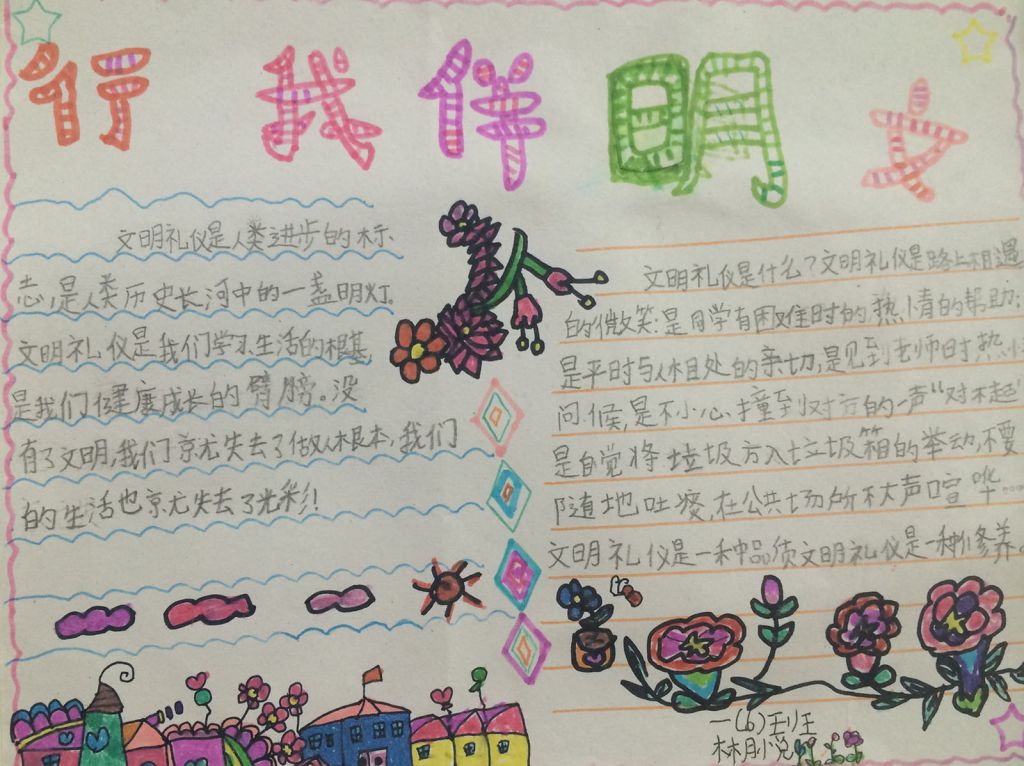 行 我 伴 明 文
文明礼仪是人类进步的标
志,是人类历史长河中的一盏明灯.
文明礼仪是我们学习生活的根基,
是我们健康成长的臂膀。没
有了文明,我们就失去了做人根本,我们
的生活也就失去了光彩!
文明礼仪是什么?文明礼仪是路上相遇
的微笑:是同学有困难时的热情的帮助:
是平时与人相处的亲切,是见到老师时热
问候,是不小心撞到对方的一声“对不起”
是自觉将垃圾放入垃圾箱的举动,不要
随地吐痰,在公共场所不大声喧哗…
文明礼仪是一种品质文明礼仪是一种修养。
一(6)班